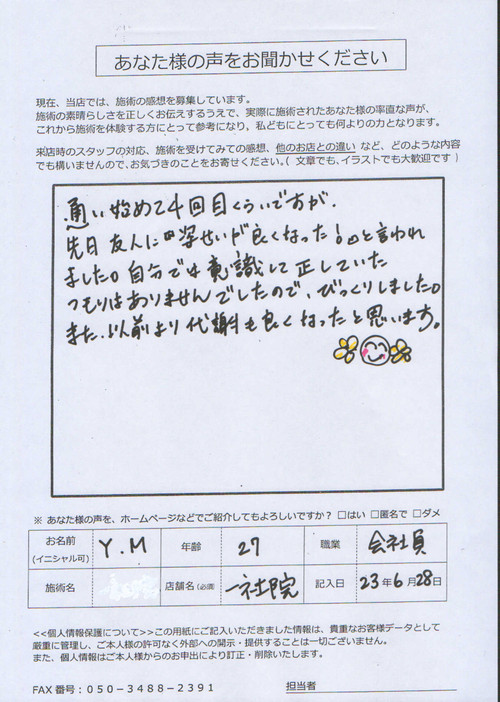 あなた様の声をお聞かせください
現在、当店では、施術の感想を募集しています。
施術の素晴らしさを正しくお伝えするうえで、実際に施術されたあなた様の率直な声が、
これから施術を体験する方にとって参考になり、私どもにとっても何よりの力となります。
来店時のスタッフの対応、施術を受けてみての感想、他のお店との違い など、どのような内容
でも構いませんので、お気づきのことをお寄せください。( 文章でも、イラストでも大歓迎です )
通い始めて4回目くらいですが、
先日 友人に『姿せいが良くなった!』と言われ
ました。自分では意識して正していた
つもりはありませんでしたので、びっくりしました。
また、以前より代謝も良くなったと思います。
※ あなた様の声を、ホームページなどでご紹介してもよろしいですか? □はい □匿名で □ダメ
お名前 (イニシャル可) Y.M 年齢 27 職業 会社員
施術名 店舗名(必須) 一社院 記入日 23年6月28日
<<個人情報保護について>>この用紙にご記入いただきました情報は、貴重なお客様データとして
厳重に管理し、ご本人様の許可なく外部への開示・提供することは一切ございません。
また、個人情報はご本人様からのお申出により訂正・削除いたします。
FAX 番号：050－3488－2391 担当者